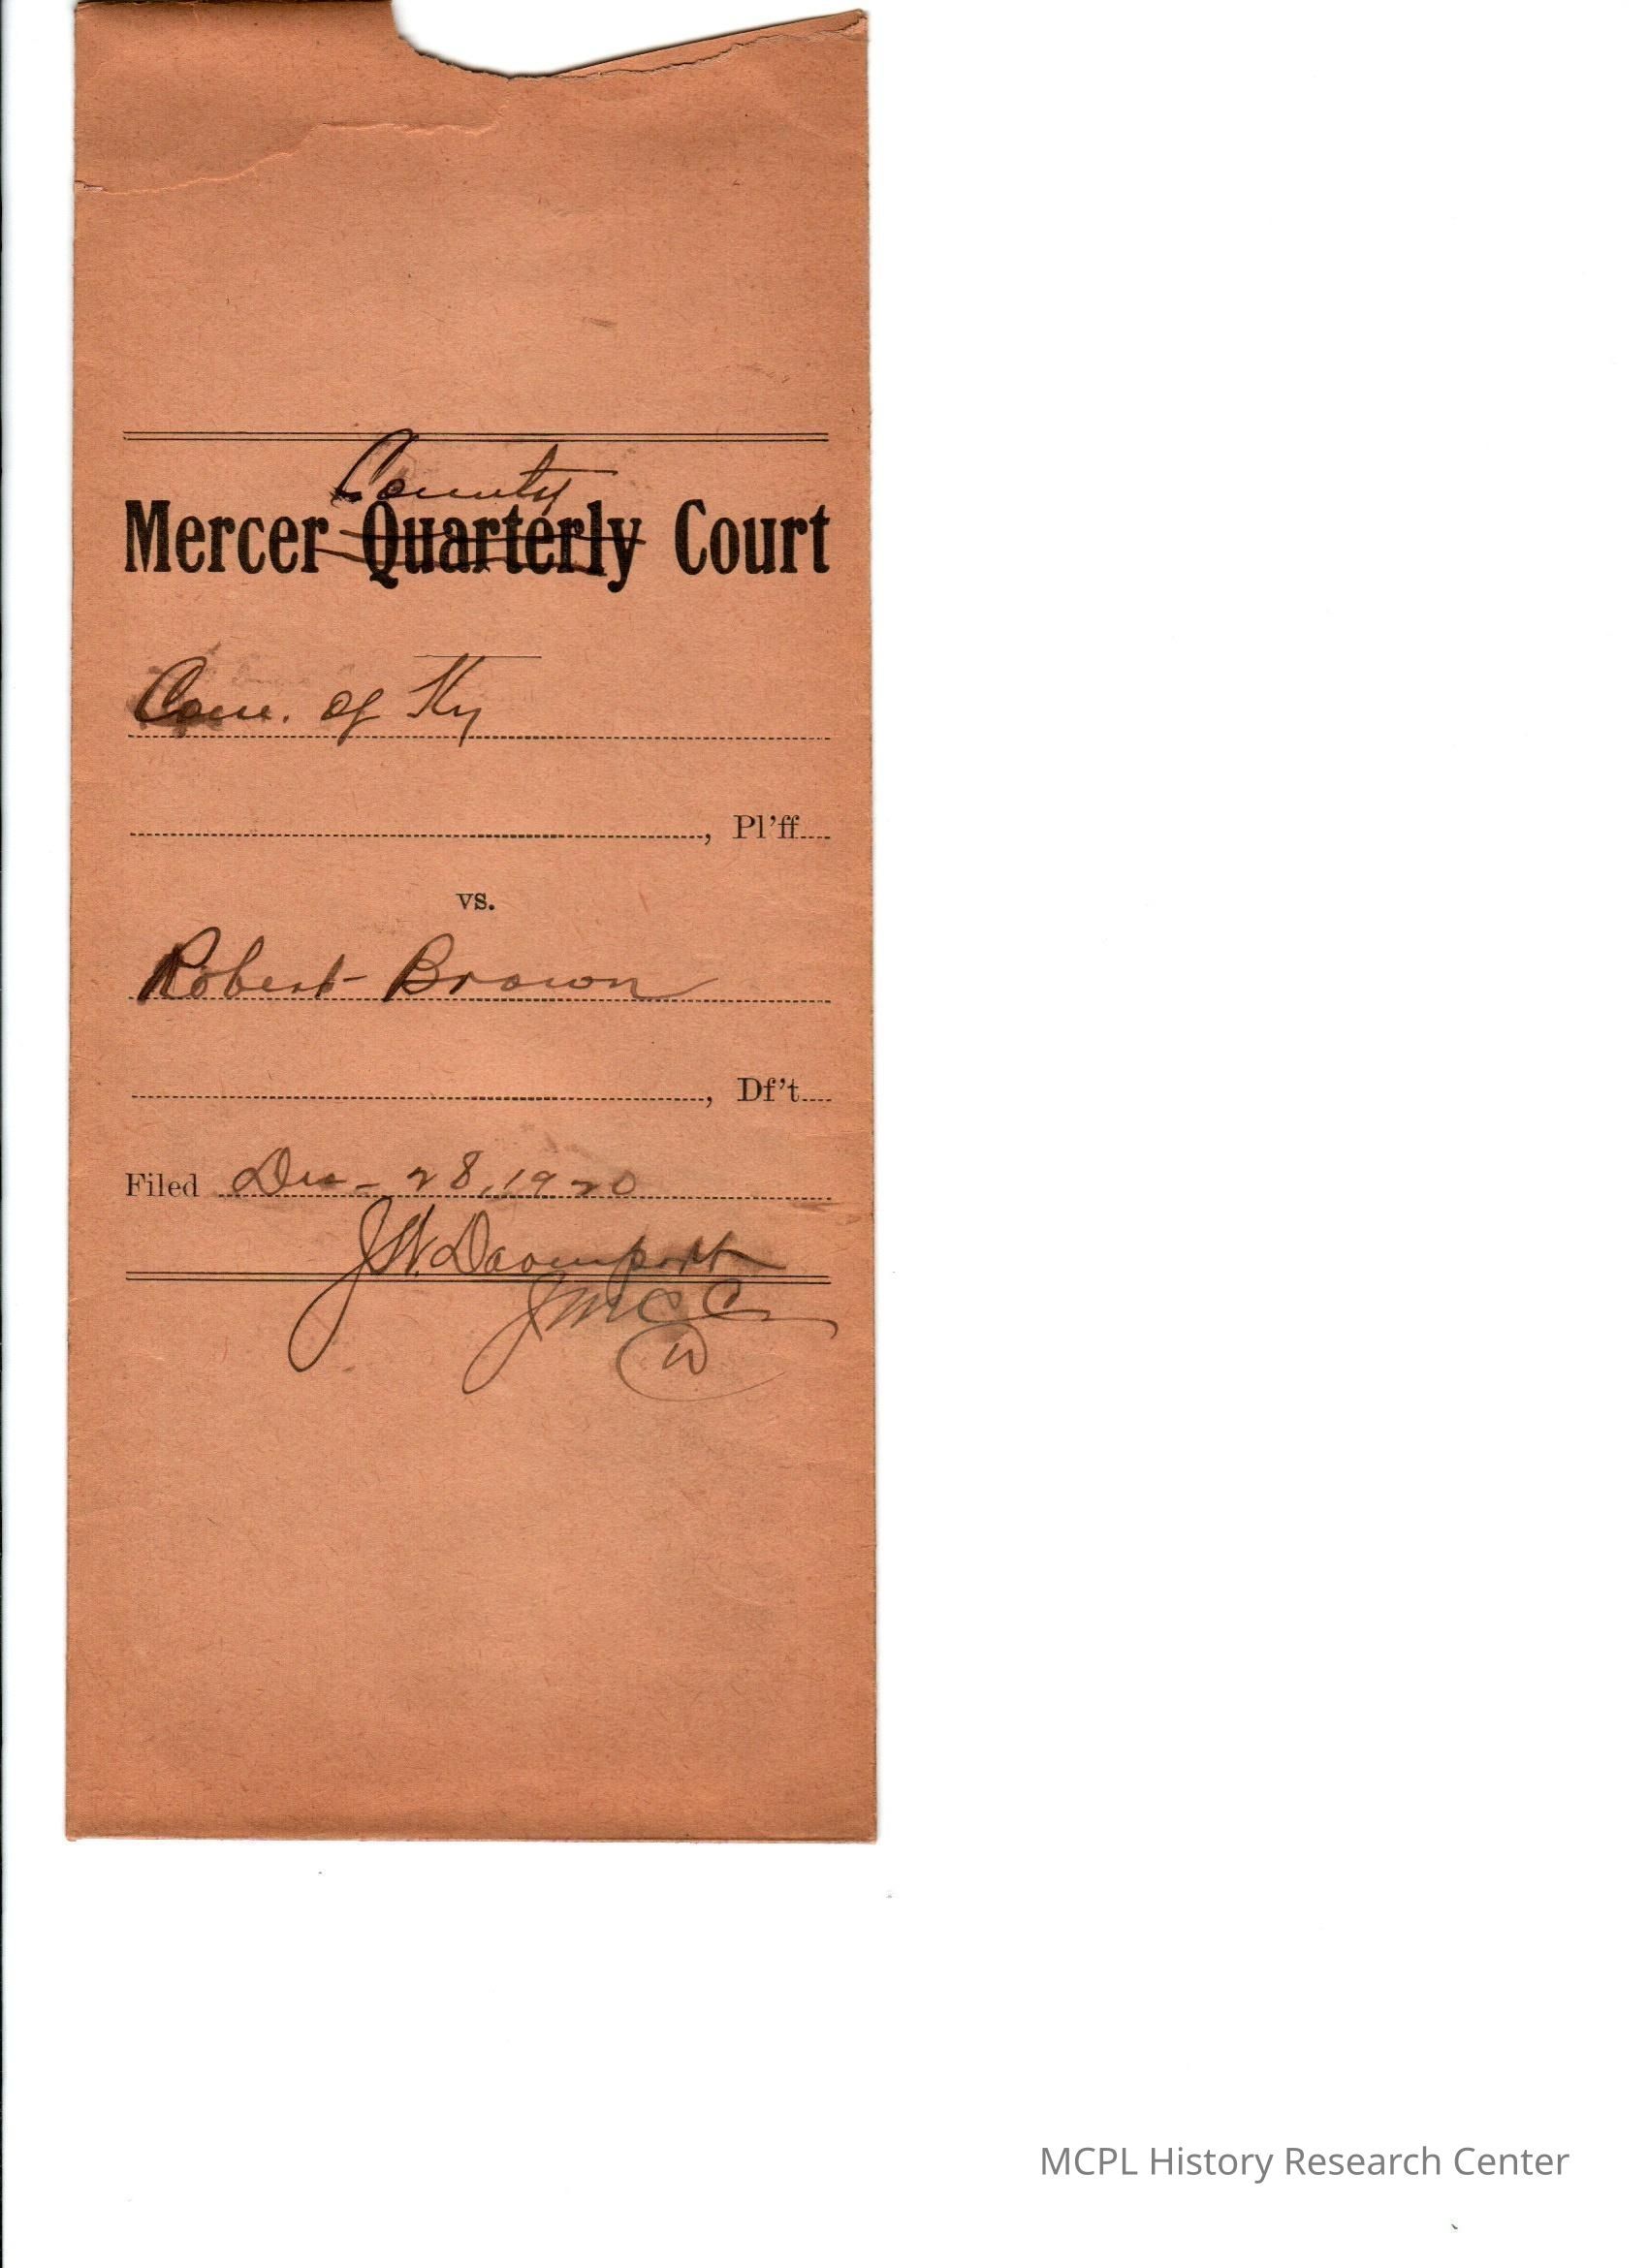 County
Mercer Quarterly Court
Com. of Ky
, Pl'ff
vs.
Robert Brown
, Df't
Filed Dec - 28, 1920
J.W. Davenport
JMCC
MCPL History Research Center